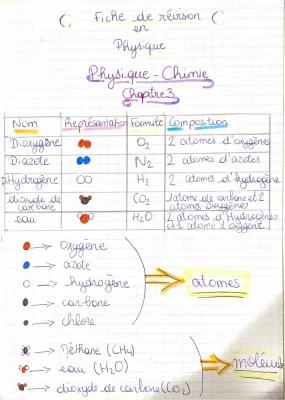 Fiche de révison
en
Physique
Physique - Chimie
Chapitre 3
Nom Représentation Formule Composition
Dioxygène O2 2 atomes d'oxygènes
Diazote N2 2 atomes d'azotes
Dihydrogène H2 2 atomes d'hydrogène
dioxyde de carbone CO2 1 atome de carbone et 2 atomes d'oxygènes
eau H2O 2 atomes d'Hydrogènes et 1 atome d'oxygène
→ oxygène
→ azote
→ hydrogène
→ carbone
→ chlore
atomes
→ Méthane (CH4)
→ eau (H2O)
→ dioxyde de carbone (CO2)
molécule